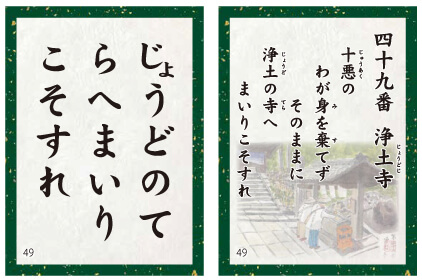 四十九番 浄土寺
じょうどじ
十悪の
じゅうあく
わが身を棄てず
み す
そのままに
浄土の寺へ
じょうど てら
まいりこそすれ
49
じょうどのて
らへまいり
こそすれ
49